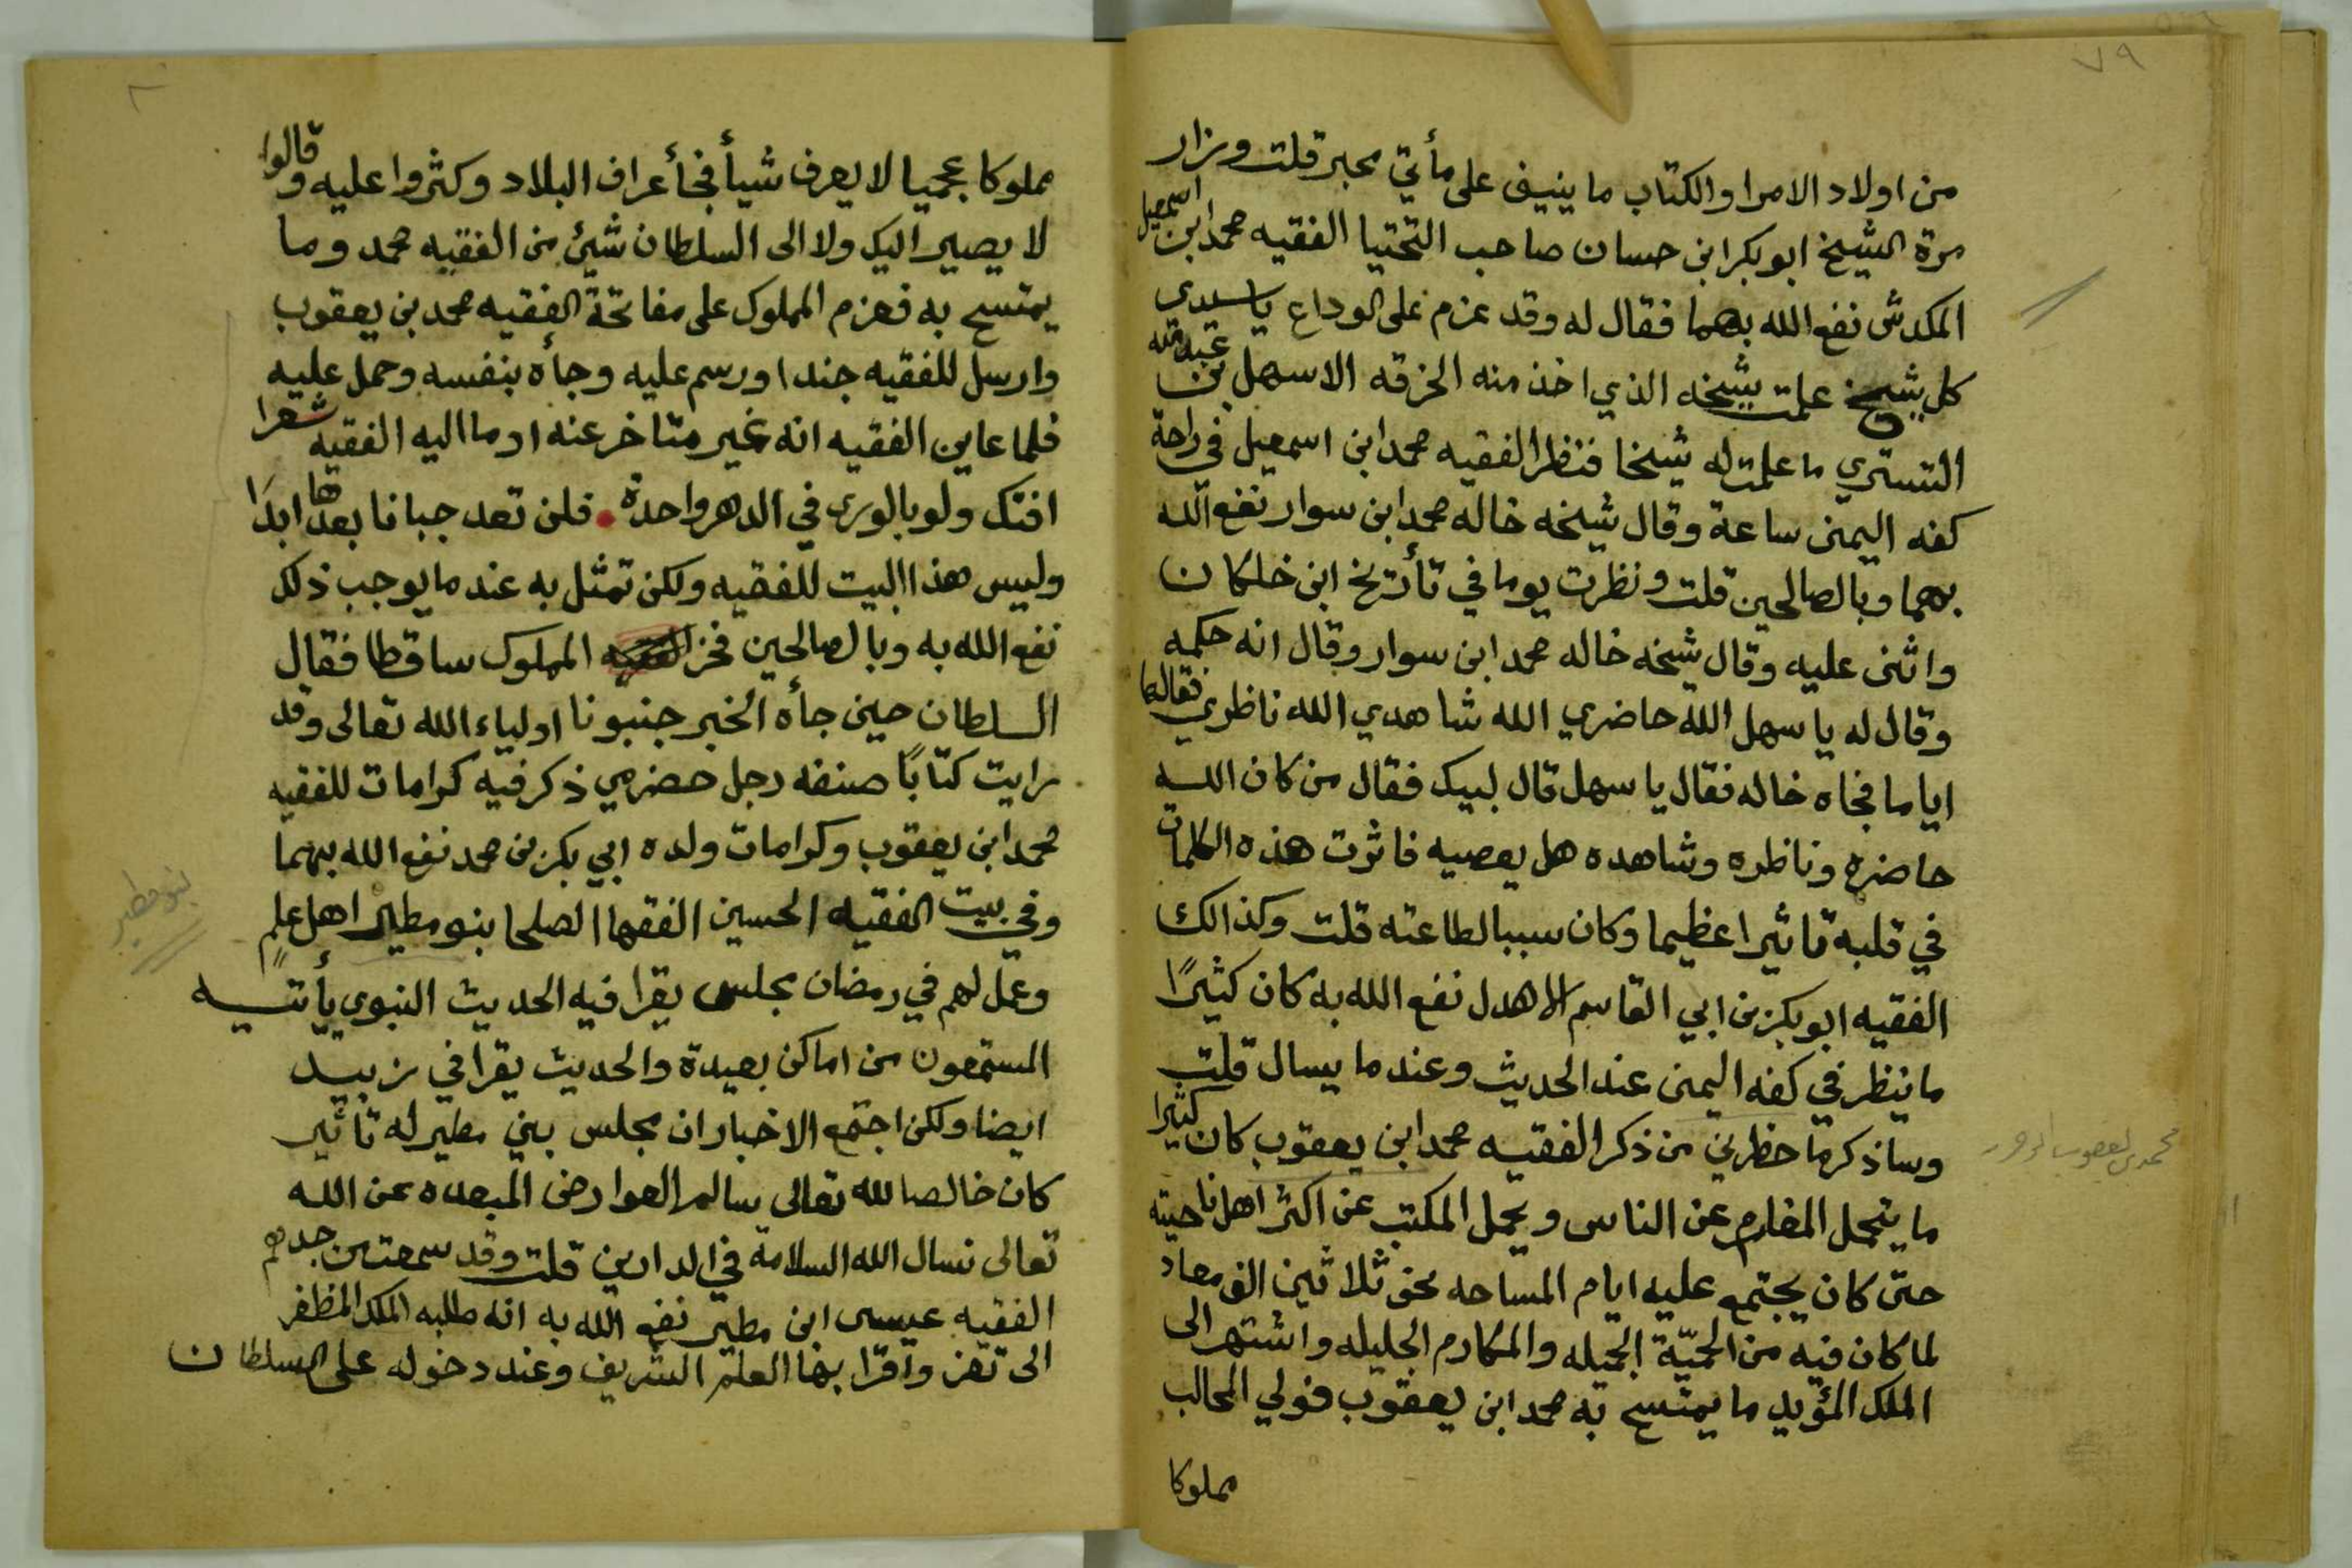 ٧٩
من اولاد الامرا والكتاب ما ينيف على مأتي محبر قلت وزار
مرة الشيخ ابو بكر ابن حسان صاحب التحتيا الفقيه محمد ابن اسمعيل
المكدش نفع الله بهما فقال له وقد عزم على الوداع يا سيدي
كل شيخ علمت شيخه الذي اخذ منه الخرقه الا سهل بن عبد الله
التستري ما علمت له شيخا فنظر الفقيه محمد ابن اسمعيل في راحة
كفه اليمنى ساعة وقال شيخه خاله محمد ابن سوار نفع الله
بهما وبالصالحين قلت ونظرت يوما في تأريخ ابن خلكان
واثنى عليه وقال شيخه خاله محمد ابن سوار وقال انه حكمه
وقال له يا سهل الله حاضري الله شاهدي الله ناظري فقالها
اياما فجاه خاله فقال يا سهل قال لبيك فقال من كان الله
حاضره وناظره وشاهده هل يعصيه فاثرت هذه الكلمات
في قلبه تاثيرا عظيما وكان سببا لطاعته قلت وكذالك
الفقيه ابو بكر بن ابي القاسم الاهدل نفع الله به كان كثيرًا
ما ينظر في كفه اليمنى عند الحديث وعند ما يسال قلت
وساذكر ما حظرني من ذكر الفقيه محمد ابن يعقوب كان كثيرا
ما يتحمل المغارم عن الناس ويحمل المكتب عن اكثر اهل ناحيته
حتى كان يجتمع عليه ايام المساحه نحو ثلاثين الف معاد
لما كان فيه من الحميّة الجميله والمكارم الجليله واشتهر الى
الملك المؤيد ما يمتسح به محمد ابن يعقوب فولي المحالب
مملوكا
محمد بن يعقوب
مملوكا عجميا لا يعرف شيأ في أعراف البلاد وكثروا عليه وقالوا
لا يصير اليك ولا الى السلطان شيئ من الفقيه محمد وما
يمتسح به فعزم المملوك على مفاتحة الفقيه محمد بن يعقوب
وارسل للفقيه جندا ورسم عليه وجأه بنفسه وحمل عليه
فلما عاين الفقيه انه غير متاخر عنه اوما اليه الفقيه شعرا
افتك ولو بالورى في الدهر واحدة . فلن تعد جبانا بعدها ابدًا
وليس هذا البيت للفقيه ولكن تمثل به عند ما يوجب ذلك
نفع الله به وبالصالحين فخر المملوك ساقطا فقال
السلطان حين جأه الخبر جنبونا اولياء الله تعالى وقد
رايت كتابًا صنفه رجل حضرمي ذكر فيه كرامات للفقيه
محمد ابن يعقوب وكرامات ولده ابي بكر بن محمد نفع الله بهما
وفي بيت الفقيه الحسين الفقها الصلحا بنو مطير اهل علم
وعمل لهم في رمضان مجلس يقرا فيه الحديث النبوي يأتيه
المستمعون من اماكن بعيدة والحديث يقرا في زبيد
ايضا ولكن اجتمع الاخبار ان مجلس بني مطير له تاثير
كان خالصا لله تعالى سالم العوارض المبعده عن الله
تعالى نسال الله السلامة في الدارين قلت وقد سمعت من جدهم
الفقيه عيسى ابن مطير نفع الله به انه طلبه الملك المظفر
الى تعز واقرا بها العلم الشريف وعند دخوله على السلطان
بنو مطير